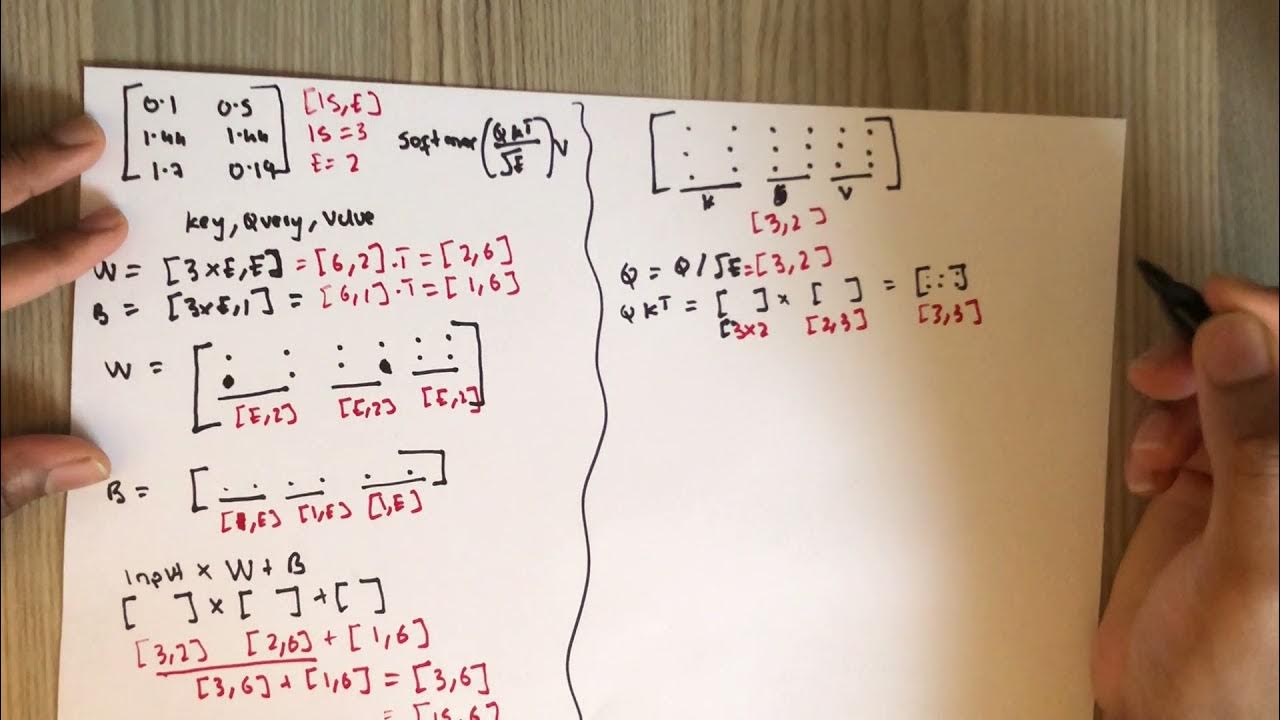 0.1 0.5 [IS,E]
1.44 1.44 IS = 3
1.7 0.19 E = 2
Softmax(QK^T/√E)V
Key, Query, Value
W = [3×E,E] = [6,2].T = [2,6]
B = [3×E,1] = [6,1].T = [1,6]
W =
[E,2] [E,2] [E,2]
B =
[1,E] [1,E] [1,E]
Input × W + B
[ ] × [ ] + [ ]
[3,2] [2,6] + [1,6]
[3,6] + [1,6] = [3,6]
= [IS,6]
K V
[3,2]
Q = Q/√E = [3,2]
QK^T = [ ] × [ ] = [:::]
[3×2 [2,3] [3,3]